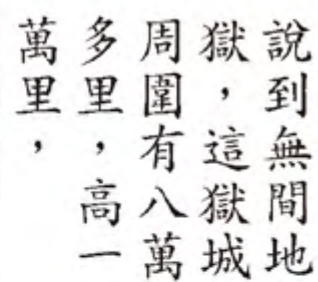 說到無間地
獄，這獄城
周圍有八萬
多里，高一
萬里，